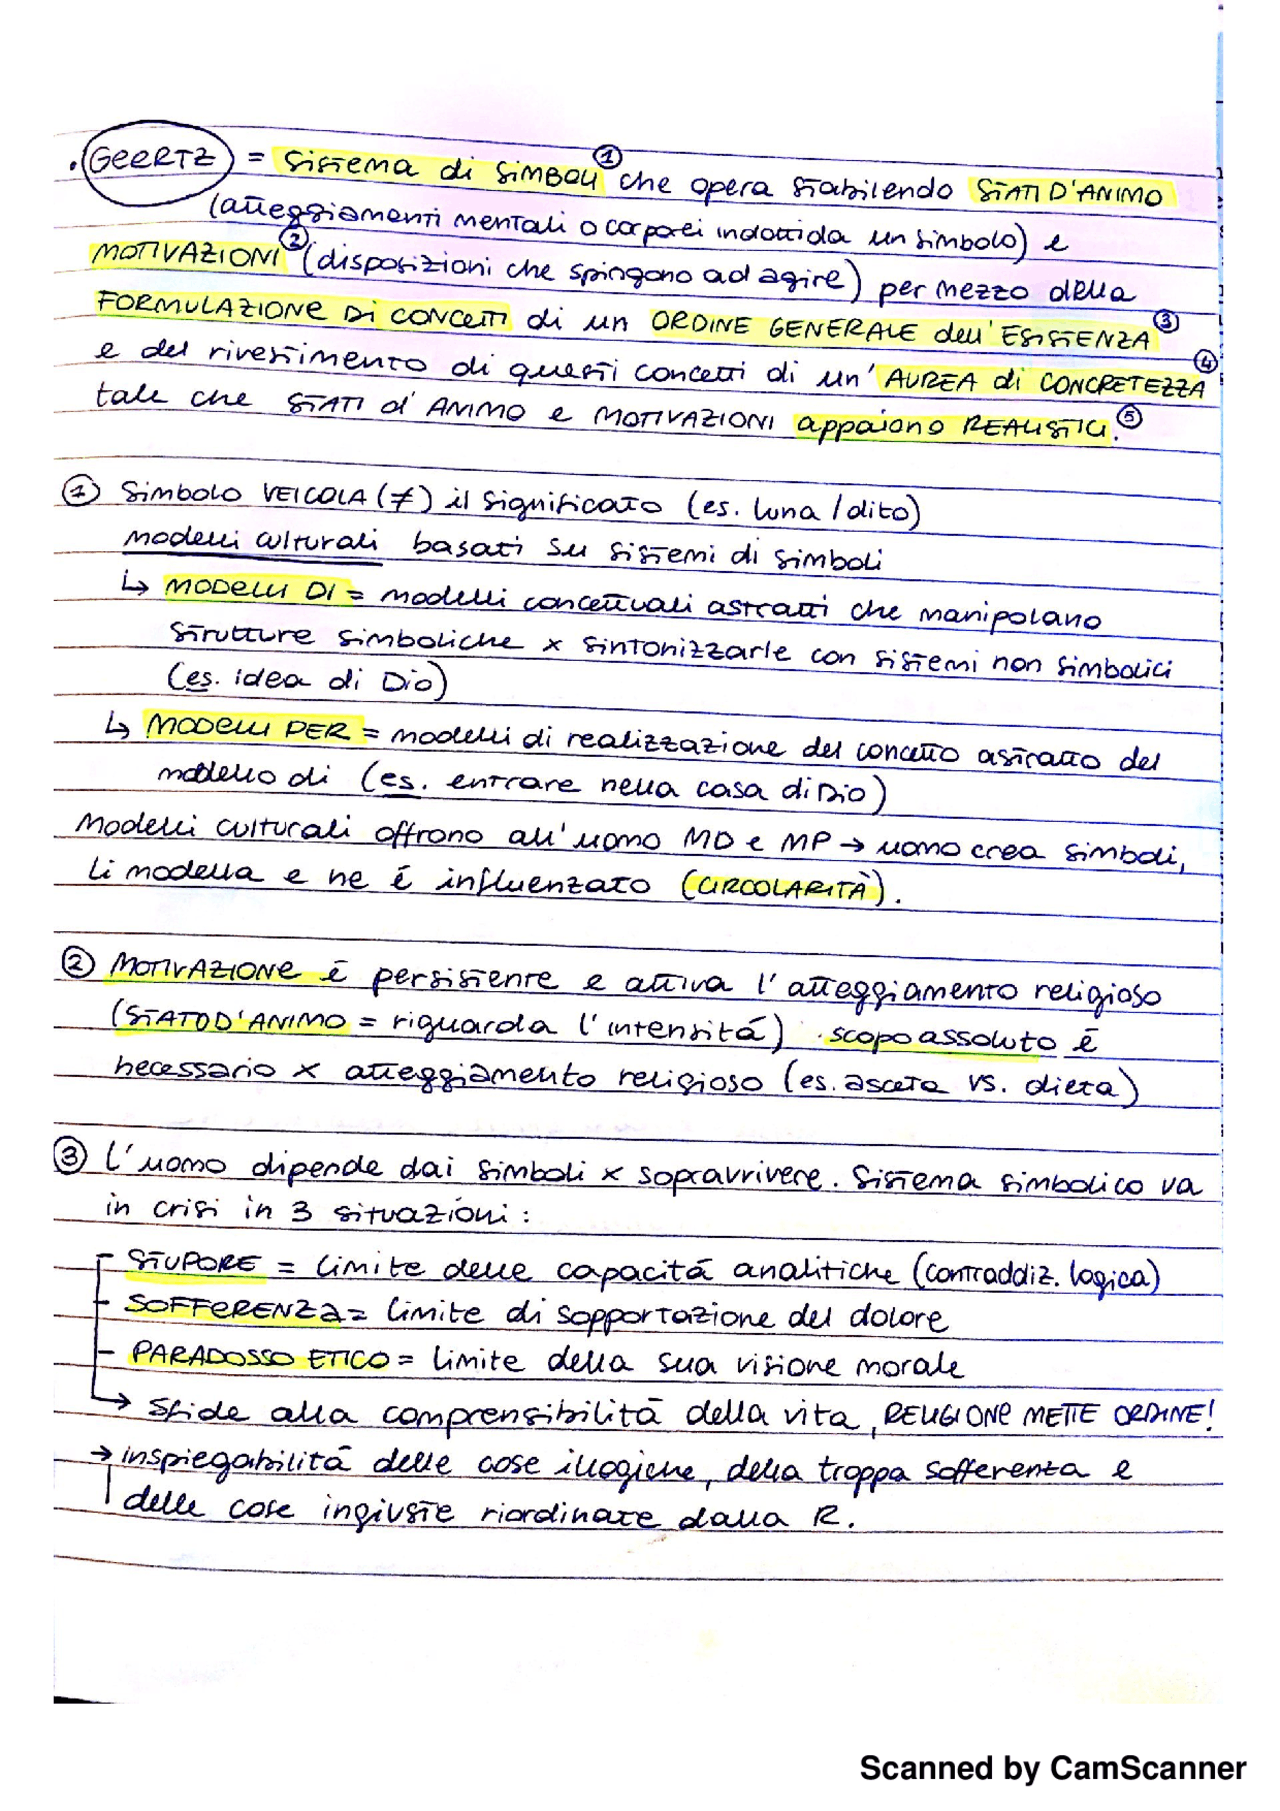 . GEERTZ = Sistema di SIMBOLI ① che opera stabilendo STATI D'ANIMO
(atteggiamenti mentali o corporei indotti da un simbolo) e
MOTIVAZIONI ② (disposizioni che spingono ad agire) per mezzo della
FORMULAZIONE DI CONCETTI di un ORDINE GENERALE dell'ESISTENZA ③
e del rivestimento di questi concetti di un'AUREA di CONCRETEZZA ④
tale che STATI d'ANIMO e MOTIVAZIONI appaiono REALISTICI. ⑤
① Simbolo VEICOLA (≠) il significato (es. luna / dito)
modelli culturali basati su sistemi di simboli
↳ MODELLI DI = modelli concettuali astratti che manipolano
strutture simboliche x sintonizzarle con sistemi non simbolici
(es. idea di Dio)
↳ MODELLI PER = modelli di realizzazione del concetto astratto del
modello di (es. entrare nella casa di Dio)
Modelli culturali offrono all'uomo MD e MP → uomo crea simboli,
li modella e ne é influenzato (CIRCOLARITÀ).
② MOTIVAZIONE é persistente e attiva l'atteggiamento religioso
(STATO D'ANIMO = riguarda l'intensitá) . scopo assoluto é
necessario x atteggiamento religioso (es. asceta vs. dieta)
③ L'uomo dipende dai simboli x sopravvivere. Sistema simbolico va
in crisi in 3 situazioni:
- STUPORE = limite delle capacitá analitiche (contraddiz. logica)
- SOFFERENZA = limite di sopportazione del dolore
- PARADOSSO ETICO = limite della sua visione morale
→ Sfide alla comprensibilitá della vita, RELIGIONE METTE ORDINE!
→ inspiegabilitá delle cose illogiche, della troppa sofferenza e
delle cose ingiuste riordinate dalla R.
Scanned by CamScanner